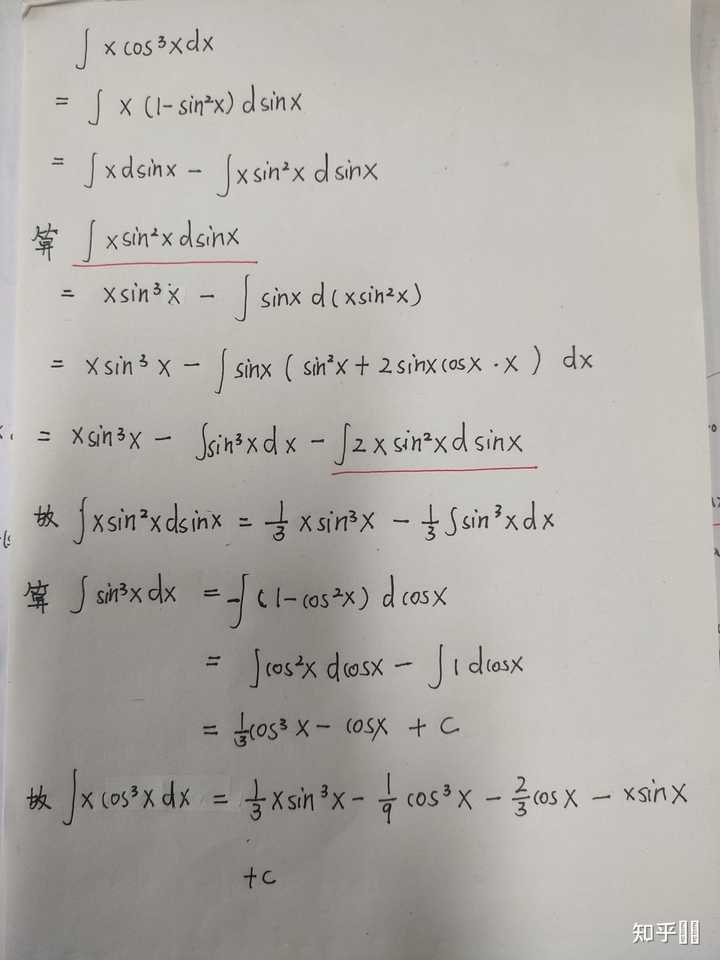 ∫ x cos³x dx
= ∫ x (1 - sin²x) d sinx
= ∫ x d sinx - ∫ x sin²x d sinx
算 ∫ x sin²x d sinx
= x sin³x - ∫ sinx d(x sin²x)
= x sin³x - ∫ sinx ( sin²x + 2 sinx cosx · x ) dx
= x sin³x - ∫ sin³x dx - ∫ 2 x sin²x d sinx
故 ∫ x sin²x d sinx = 1/3 x sin³x - 1/3 ∫ sin³x dx
算 ∫ sin³x dx = -∫ (1 - cos²x) d cosx
= ∫ cos²x d cosx - ∫ 1 d cosx
= 1/3 cos³x - cosx + C
故 ∫ x cos³x dx = 1/3 x sin³x - 1/9 cos³x - 2/3 cosx - x sinx
+ C
知乎